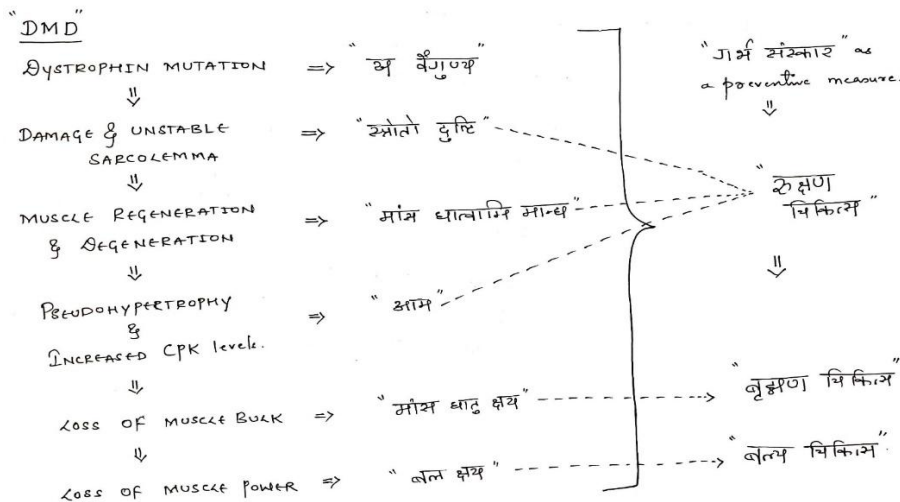 "DMD"
DYSTROPHIN MUTATION => "ख वैगुण्य"
⇓
DAMAGE & UNSTABLE => "स्रोतो दुष्टि"
SARCOLEMMA
⇓
MUSCLE REGENERATION => "मांस धात्वाग्नि मान्ध"
& DEGENERATION
⇓
PSEUDOHYPERTROPHY
& => "आम"
INCREASED CPK levels.
⇓
LOSS OF MUSCLE BULK => "मांस धातु क्षय"
⇓
LOSS OF MUSCLE POWER => "बल क्षय"
"गर्भ संस्कार" as
a preventive measure.
⇓
"रुक्षण
चिकित्स"
⇓
"बृह्मण चिकित्स"
"बल्य चिकित्स".